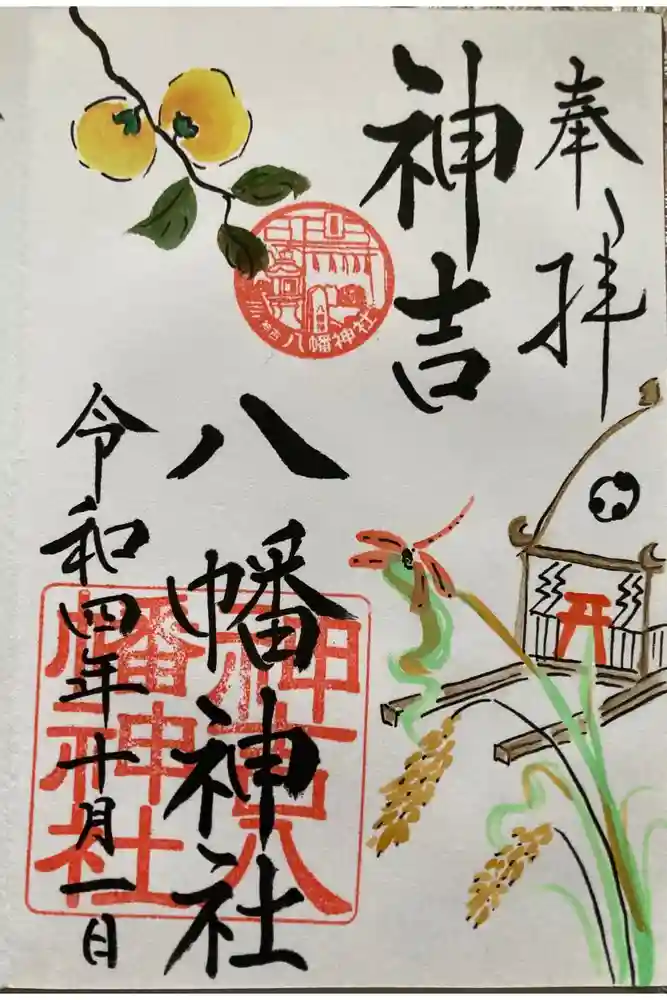 奉拝
神吉
八幡神社
令和四年十月一日
八幡神社
神吉八
幡神社